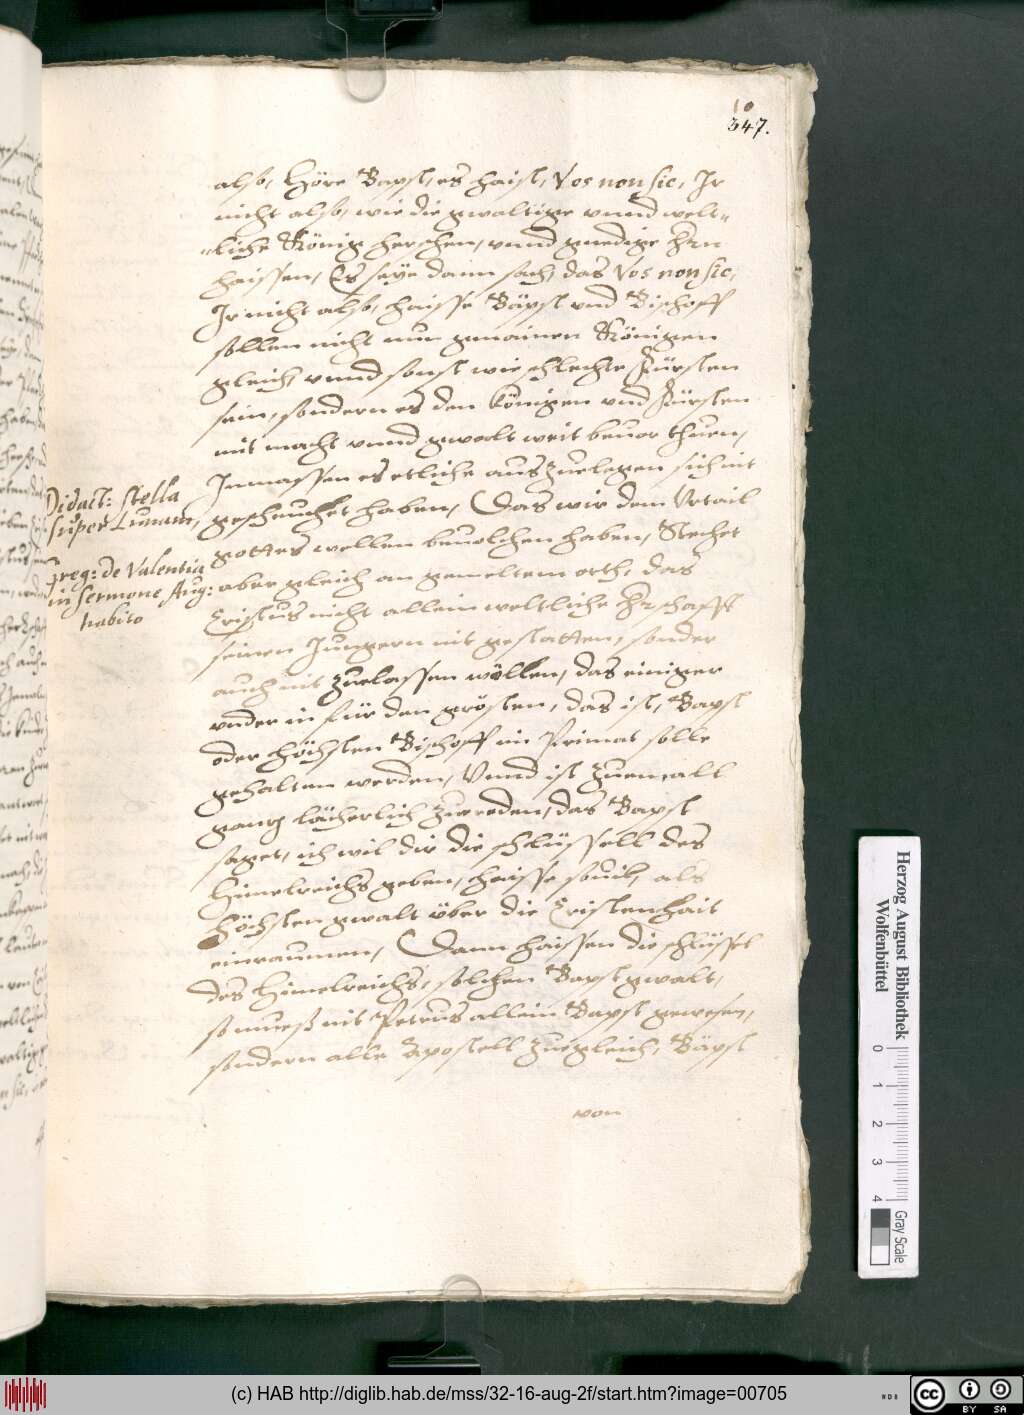 10
347.
also, Höre Bapst, es haist, Vos non sic, Ir
nicht also, wie die gwaltige vnnd welt=
=liche König herschen, vnnd gnedige Hrn
haissen, Es seye dann sach, das Vos non sic,
Ir nicht also, haisse Bäpst vnd Bischoff
sollen nicht nur gmainen Königen
gleich, vnnd sonst wie schlechte Fürsten
sein, sondern es den Königen vnd Fürsten
mit macht vnnd gwalt weit beuor thuen,
Inmassen es etliche auszuelegen sich nit
gescheuchet haben, Das wir dem Vrtail
gottes wellen beuolchen haben, Stehet
aber gleich an gemeltem orth, das
Cristus nicht allein weltliche Hrschafft
seinen Jungern nit gestatten, sonder
auch nit zuelassen wöllen, das einiger
vnder in für den grösten, das ist, Bapst
oder höchsten Bischoff im Primat solle
gehalten werden, Vnnd ist zuemall
gantz lächerlich zue reden, das Bapst
saget, ich wil dir die schlüssell des
Himelreichs geben, haisse souil, als
höchsten gwalt über die Cristenhait
einraumen, Dann haissen die schlüssel
des Himelreichs, solchen Bapst gwalt,
so mueß nit Petrus allein Bapst gewesen,
sondern alle Apostell zuegleich, Bäpst
von
Didact: stella
super Lunam,
Greg: de Valentia
in sermone Aug:
habito
Herzog August Bibliothek
Wolfenbüttel
0 1 2 3 4
Gray Scale
(c) HAB http://diglib.hab.de/mss/32-16-aug-2f/start.htm?image=00705
WDB
cc
BY SA